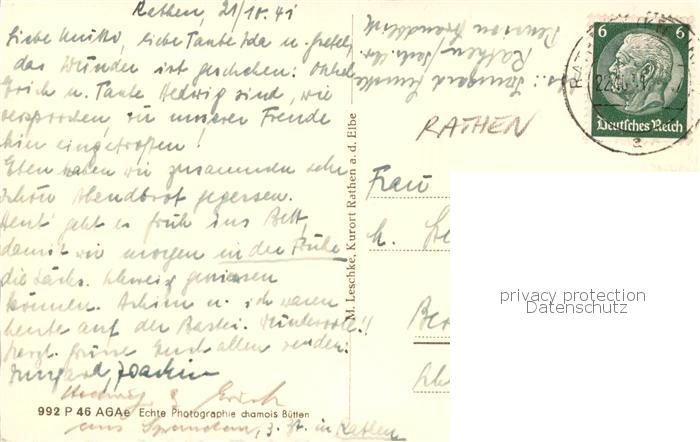 Rathen, 21/10.41
Liebe Mutti, liebe Tante Ida u. Gretel,
das Wunder ist geschehen: Onkel
Erich u. Tante Hedwig sind, wie
versprochen, zu unserer Freude
hier eingetroffen!
Eben haben wir zusammen sehr
schön Abendbrot gegessen.
Heut' geht es früh ins Bett,
damit wir morgen in der Frühe
die Sächs. Schweiz geniessen
können. Achim u. ich waren
heute auf der Bastei. Wundervoll!!
Herzl. Grüsse Euch allen senden:
Irmgard, Joachim
Hedwig & Erich
aus Spandau, z. Zt. in Rathen
992 P 46 AGAe Echte Photographie chamois Bütten
M. Leschke, Kurort Rathen a. d. Elbe
Abs.: Irmgard
Rathen, Sächs. Schw.
Pension
RATHEN
6 6
Deutsches Reich
22.10.41
a
Frau
privacy protection
Datenschutz